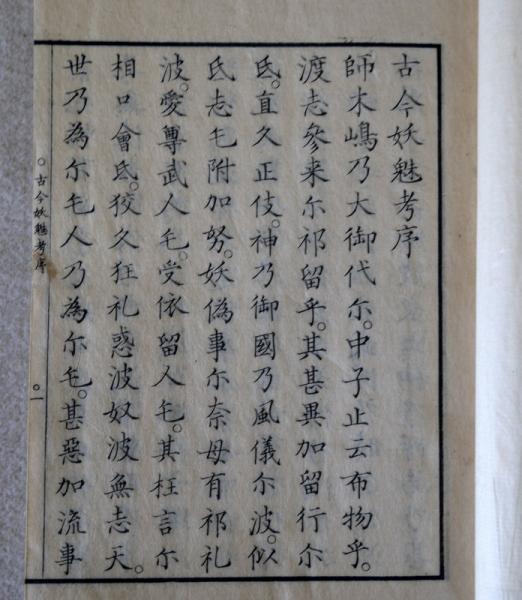 古今妖魅考序
師木嶋乃大御代尓。中子止云布物乎。
渡志參来尓祁留乎。其甚異加留行尓
氐。直久正伎。神乃御國乃風儀尓波。似
氐志乇附加努。妖偽事尓奈母有祁礼
波。愛尊武人乇。受依留人乇。其枉言尓
相口會氐。狡久狂礼惑波奴波無志天。
世乃為尓乇人乃為尓乇。甚惡加流事
○古今妖魅考序
○一